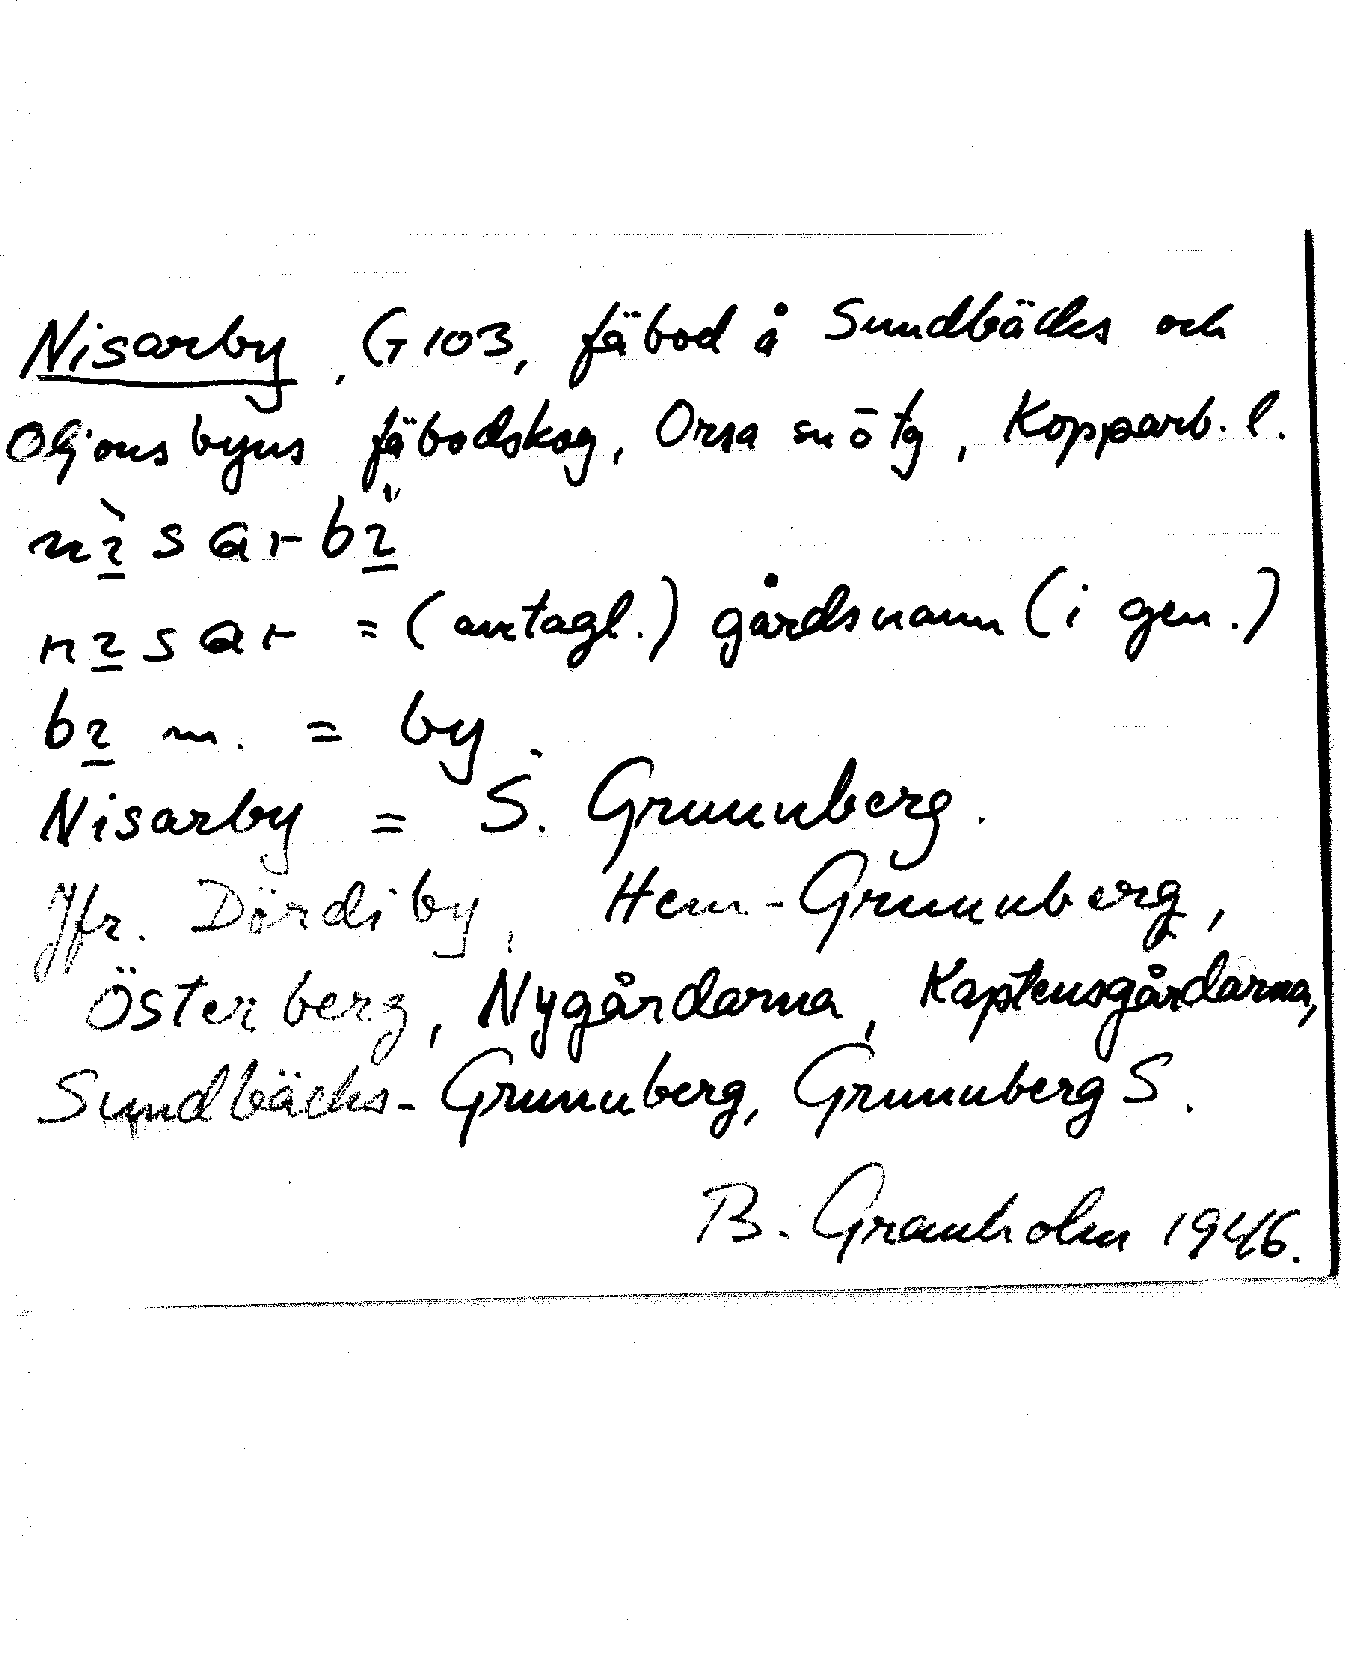 Nisarby, G 103, fäbod å Sundbäcks och
Oljonsbyns fäbodskog, Orsa sn ö tg, Kopparb. l.
nìsarbì
nisar = (antagl.) gårdsnamn (i gen.)
bi m. = by.
Nisarby = S. Grunuberg.
Jfr. Dördiby, Hem-Grunuberg,
Österberg, Nygårdarna, Kaptensgårdarna,
Sundbäcks-Grunuberg, Grunuberg S.
B. Granholm 1946.